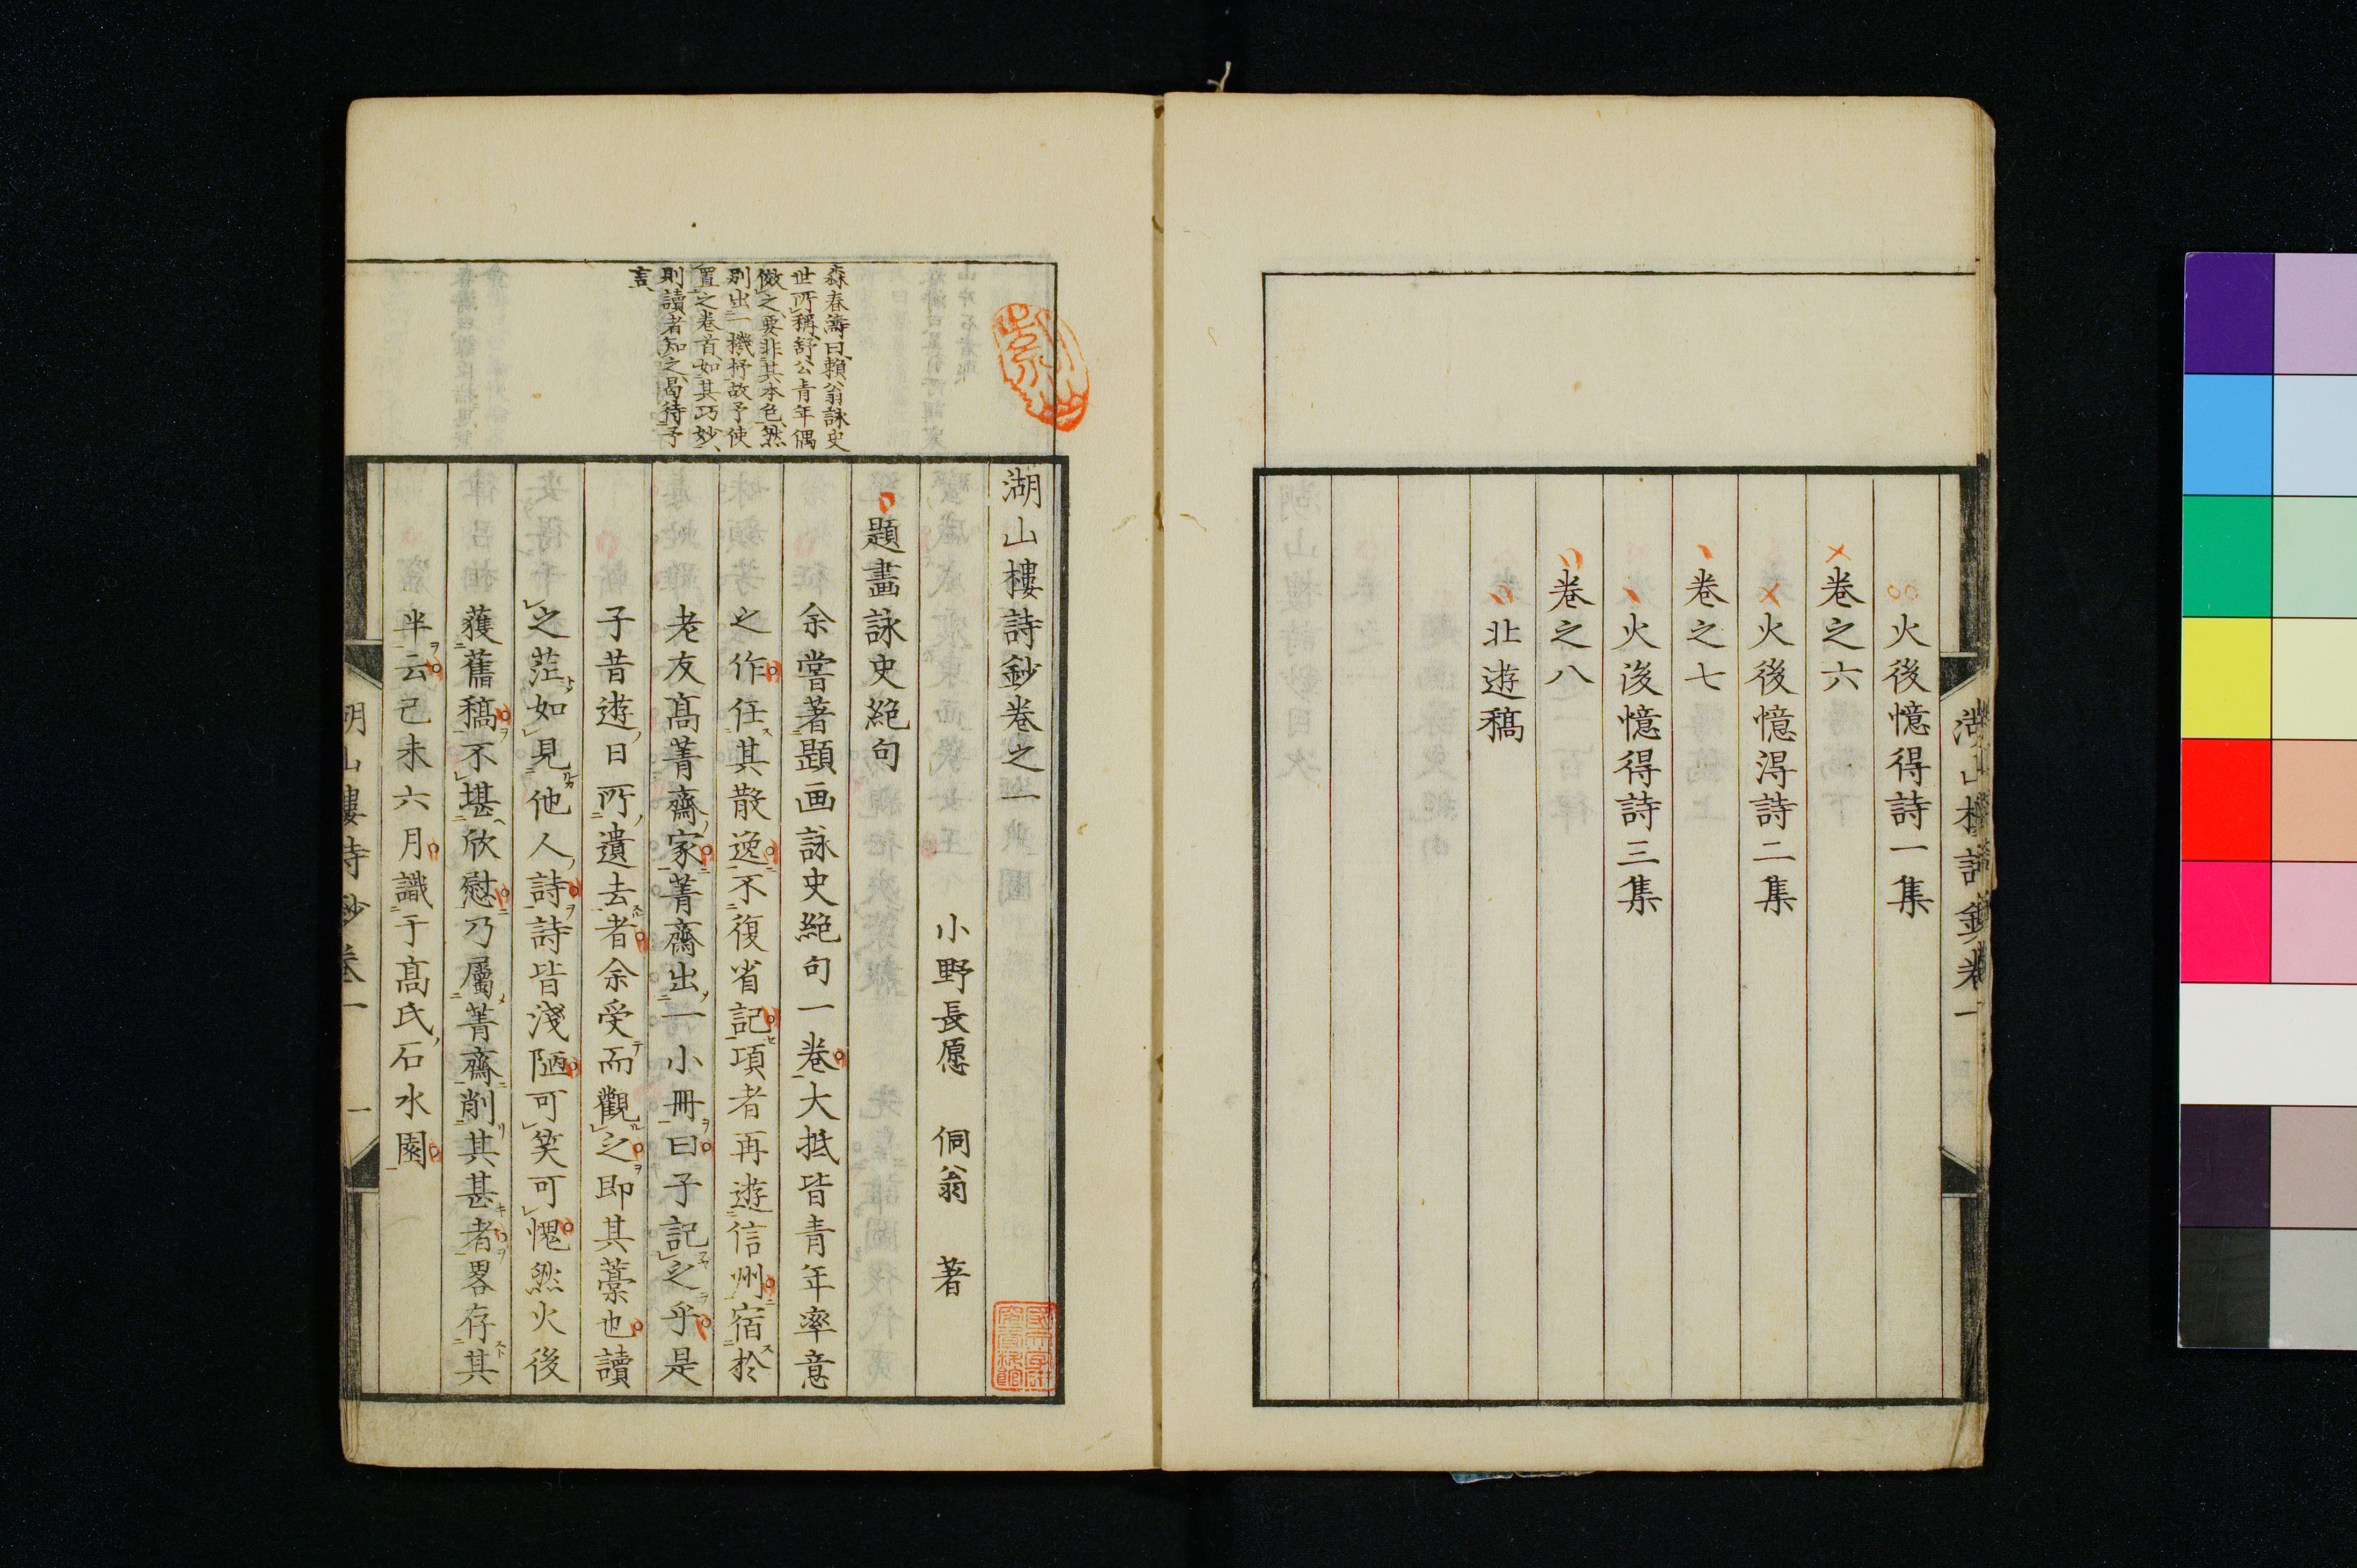 火後憶得詩一集
卷之六
火後憶得詩二集
卷之七
火後憶得詩三集
卷之八
北遊稿
湖山樓詩鈔卷一
森春濤曰賴翁詠史
世所稱舒公青年偶
傚之要非其本色然
別出一機杼故予使
置之卷首如其巧妙
則讀者知之曷待予
言
湖山樓詩鈔卷之一
小野長愿 侗翁 著
題畫詠史絶句
余嘗著題画詠史絶句一卷大抵皆青年率意
之作任其散逸不復省記項者再遊信州宿於
老友高菁齋家菁齋出一小冊曰子記之乎是
子昔遊日所遺去者余受而觀之即其藁也讀
之茫如見他人詩詩皆淺陋可笑可愧然火後
獲舊稿不堪欣慰乃屬菁齋削其甚者畧存其
半云己未六月識于高氏石水園
湖山樓詩鈔卷一 一